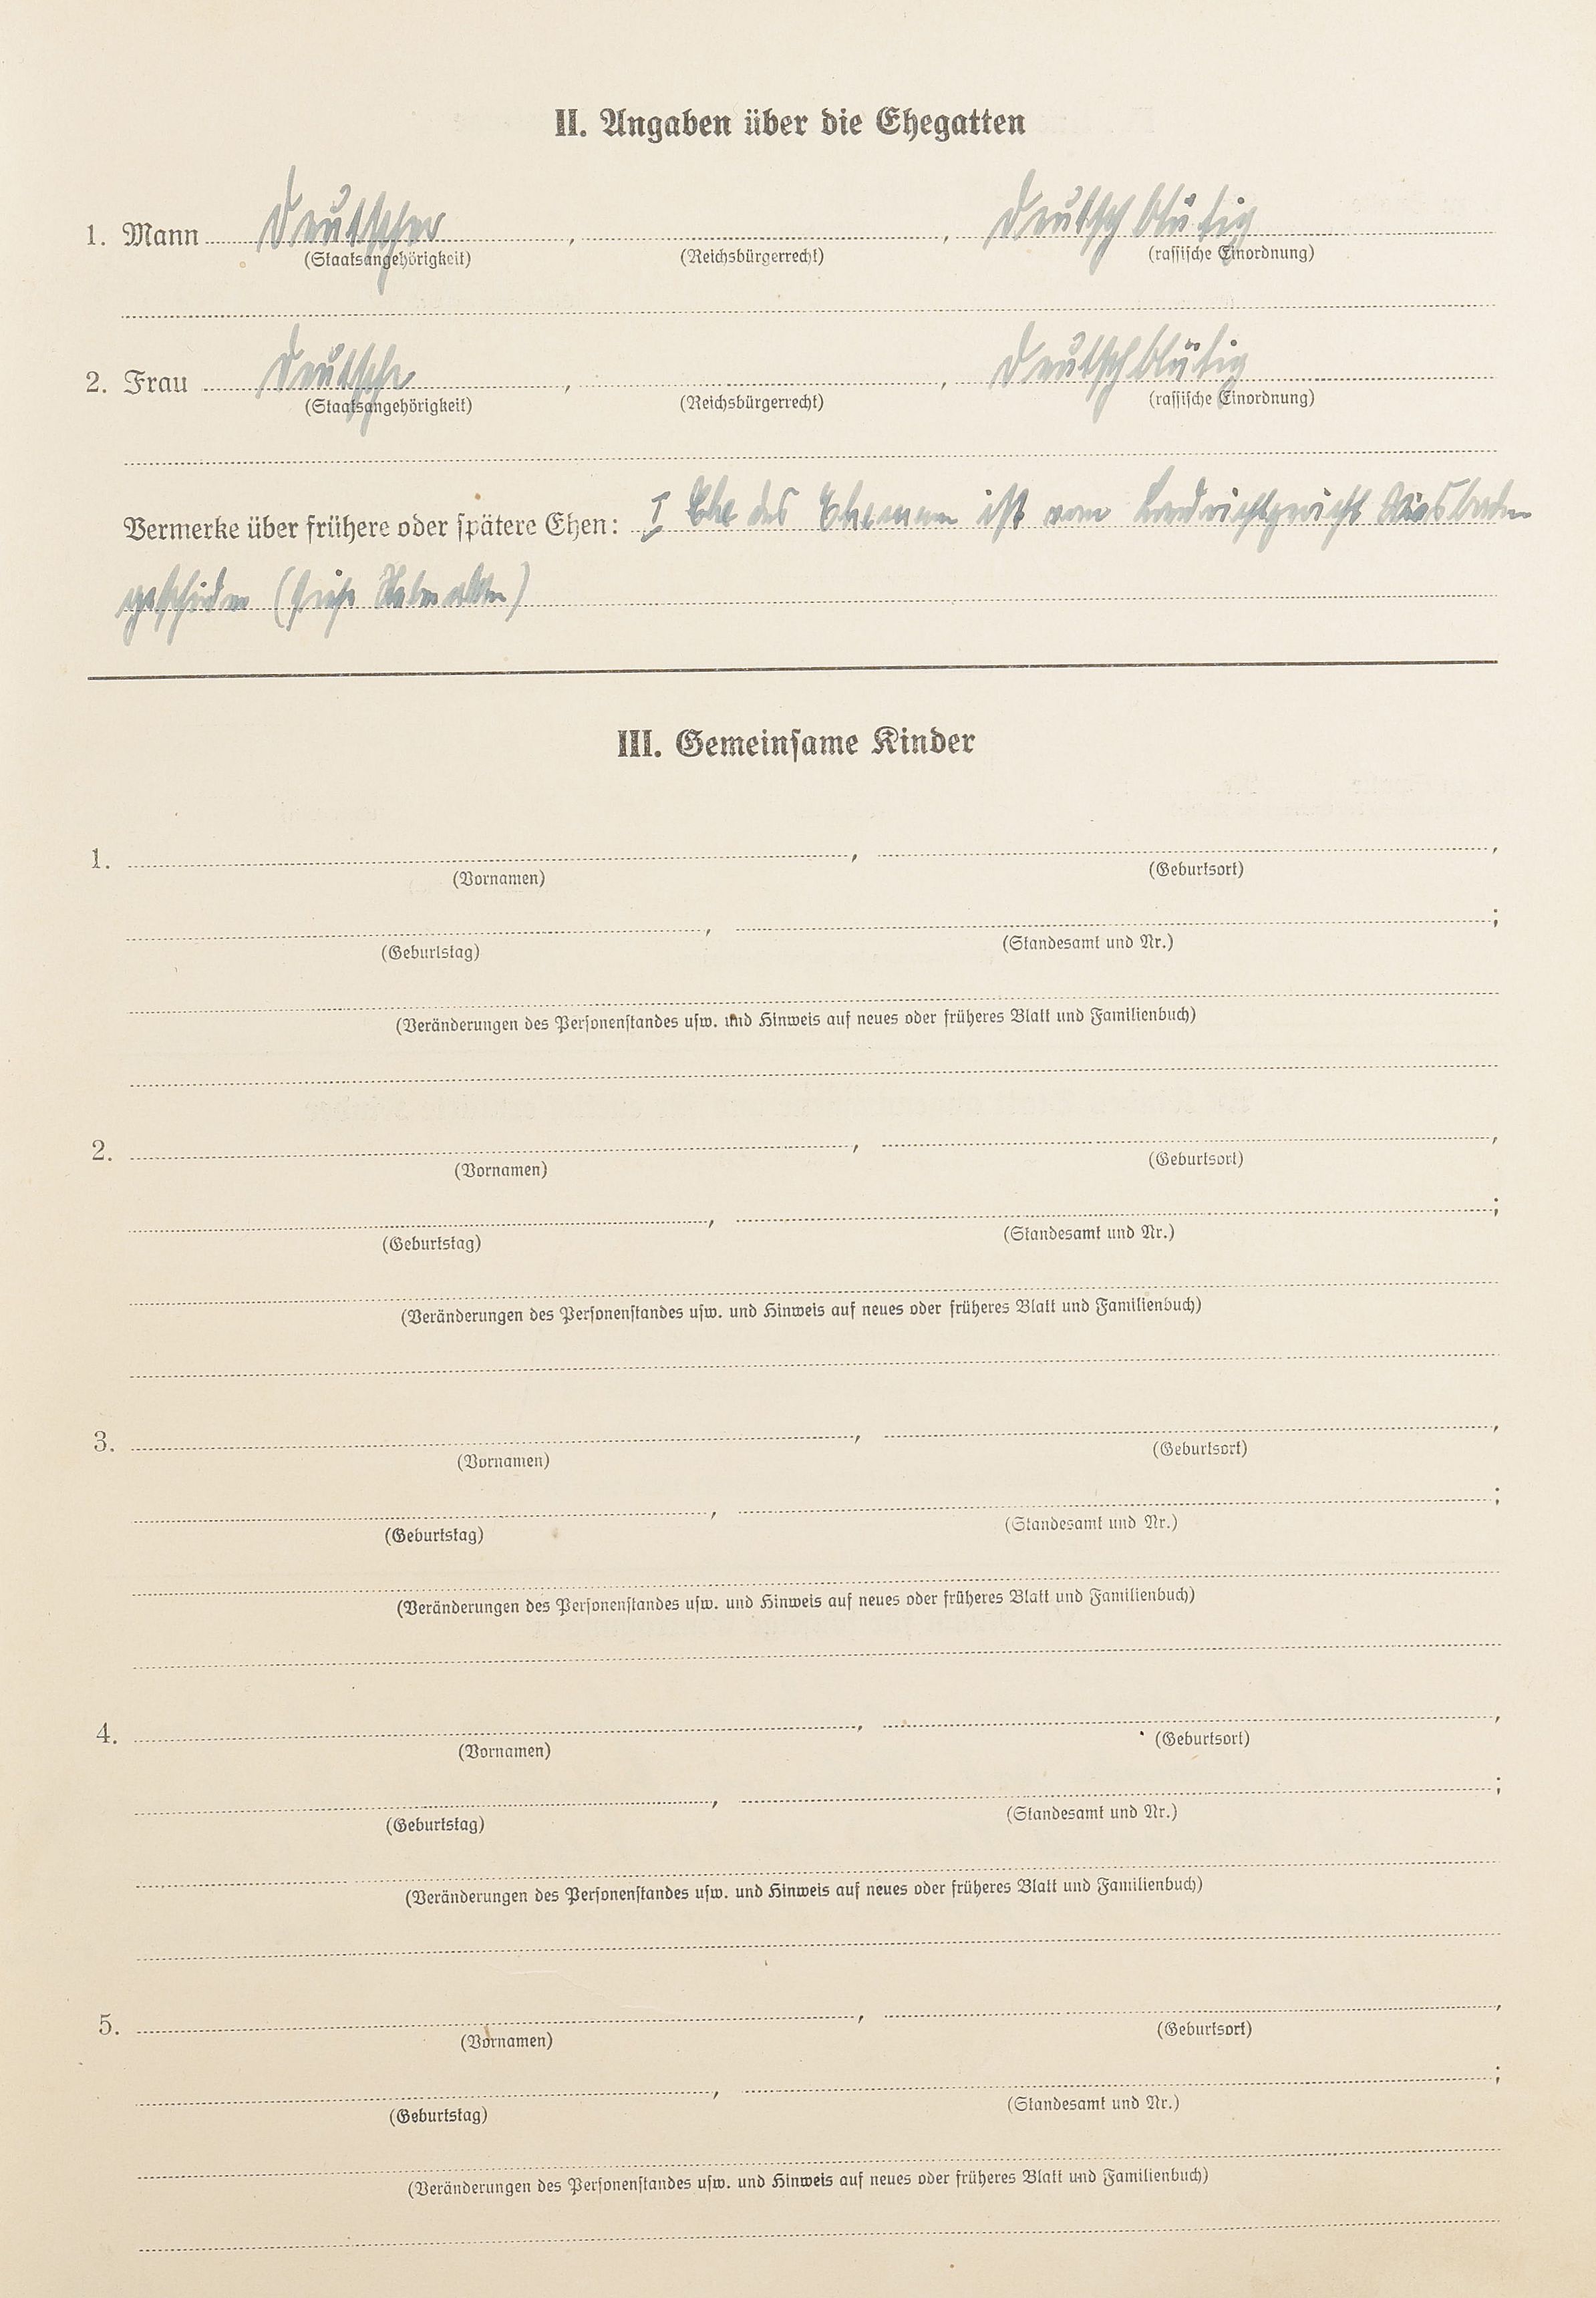 II. Angaben über die Ehegatten
1. Mann Deutscher, , deutschblütig
(Staatsangehörigkeit) (Reichsbürgerrecht) (rassische Einordnung)
2. Frau Deutsche, , deutschblütig
(Staatsangehörigkeit) (Reichsbürgerrecht) (rassische Einordnung)
Vermerke über frühere oder spätere Ehen: I Ehe des Ehemann ist vom Wiesbaden
geschieden (siehe
III. Gemeinsame Kinder
1. , ,
(Vornamen) (Geburtsort)
, ;
(Geburtstag) (Standesamt und Nr.)
(Veränderungen des Personenstandes usw. und Hinweis auf neues oder früheres Blatt und Familienbuch)
2. , ,
(Vornamen) (Geburtsort)
, ;
(Geburtstag) (Standesamt und Nr.)
(Veränderungen des Personenstandes usw. und Hinweis auf neues oder früheres Blatt und Familienbuch)
3. , ,
(Vornamen) (Geburtsort)
, ;
(Geburtstag) (Standesamt und Nr.)
(Veränderungen des Personenstandes usw. und Hinweis auf neues oder früheres Blatt und Familienbuch)
4. , ,
(Vornamen) (Geburtsort)
, ;
(Geburtstag) (Standesamt und Nr.)
(Veränderungen des Personenstandes usw. und Hinweis auf neues oder früheres Blatt und Familienbuch)
5. , ,
(Vornamen) (Geburtsort)
, ;
(Geburtstag) (Standesamt und Nr.)
(Veränderungen des Personenstandes usw. und Hinweis auf neues oder früheres Blatt und Familienbuch)